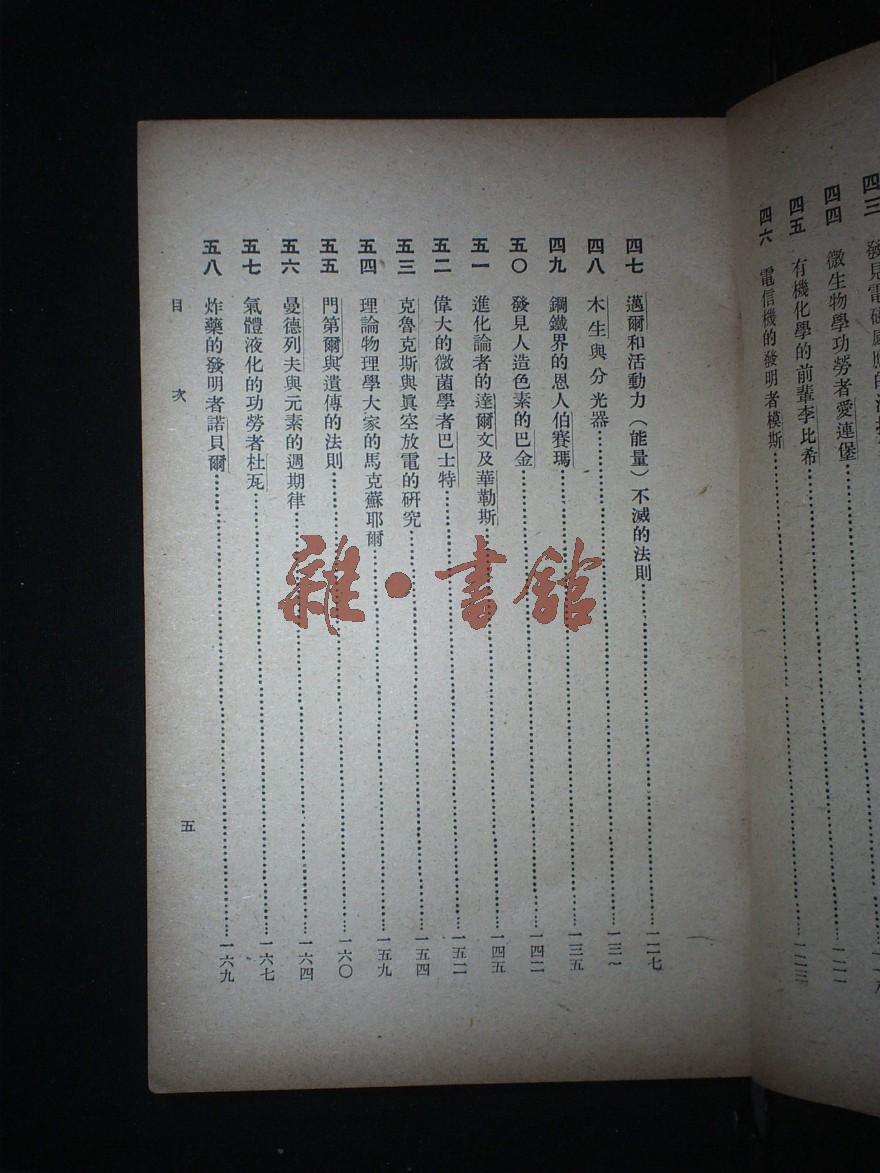 四三 發見電磁感應的法
四四 微生物學功勞者愛連堡……一二一
四五 有機化學的前輩李比希……一二三
四六 電信機的發明者模斯
四七 邁爾和活動力（能量）不滅的法則……一二七
四八 木生與分光器……一三一
四九 鋼鐵界的恩人伯賽瑪……一三五
五〇 發見人造色素的巴金……一四二
五一 進化論者的達爾文及華勒斯……一四五
五二 偉大的微菌學者巴士特……一五二
五三 克魯克斯與眞空放電的硏究……一五四
五四 理論物理學大家的馬克蘇耶爾……一五九
五五 門第爾與遺傳的法則……一六〇
五六 曼德列夫與元素的週期律……一六四
五七 氣體液化的功勞者杜瓦……一六七
五八 炸藥的發明者諾貝爾……一六九
目次
五
雜·書館